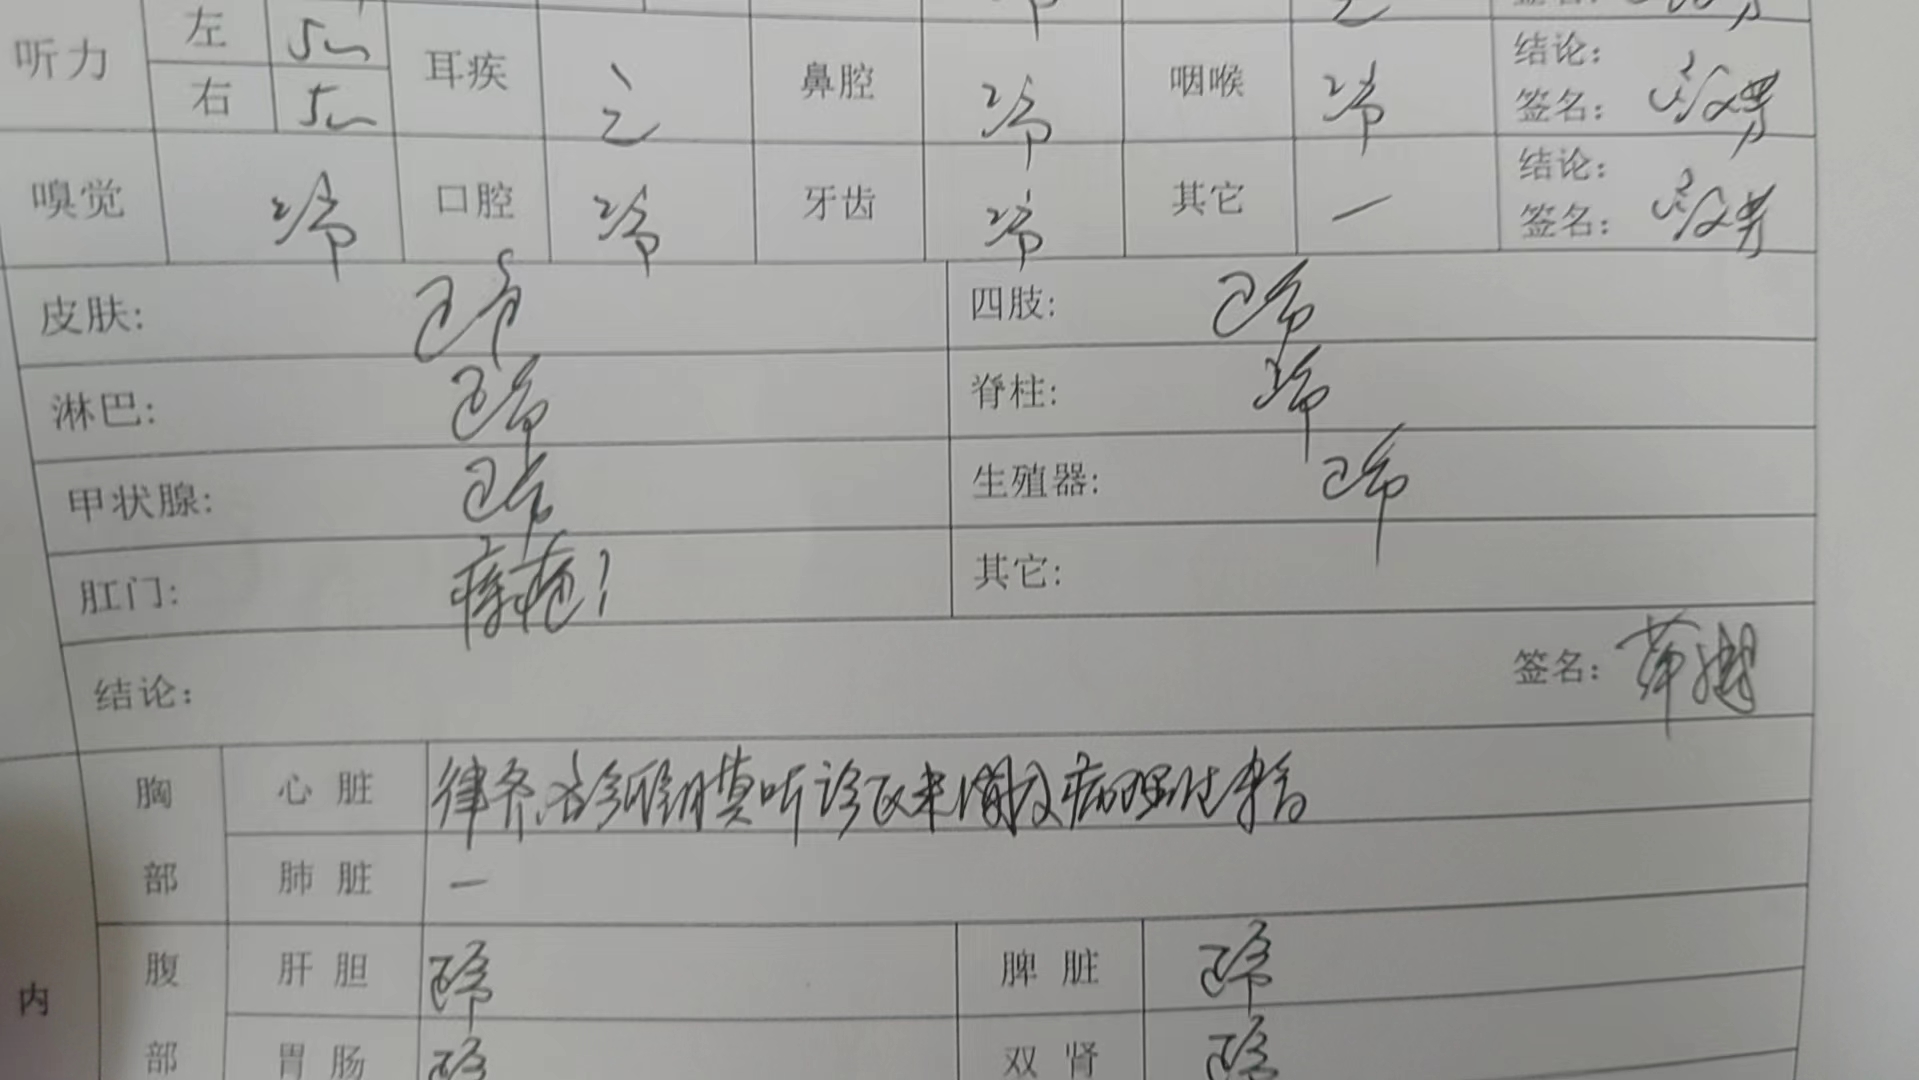 听力 左 5m 耳疾 无 鼻腔 正常 咽喉 正常 结论:
右 5m 签名:
嗅觉 正常 口腔 正常 牙齿 正常 其它 一 结论:
签名:
皮肤: 正常 四肢: 正常
淋巴: 正常 脊柱: 正常
甲状腺: 正常 生殖器: 正常
肛门: 痔疮? 其它:
结论: 签名:
胸部 心脏 律齐,各瓣膜听诊区未闻及病理性杂音
肺脏 一
内 腹部 肝胆 正常 脾脏 正常
胃肠 正常 双肾 正常